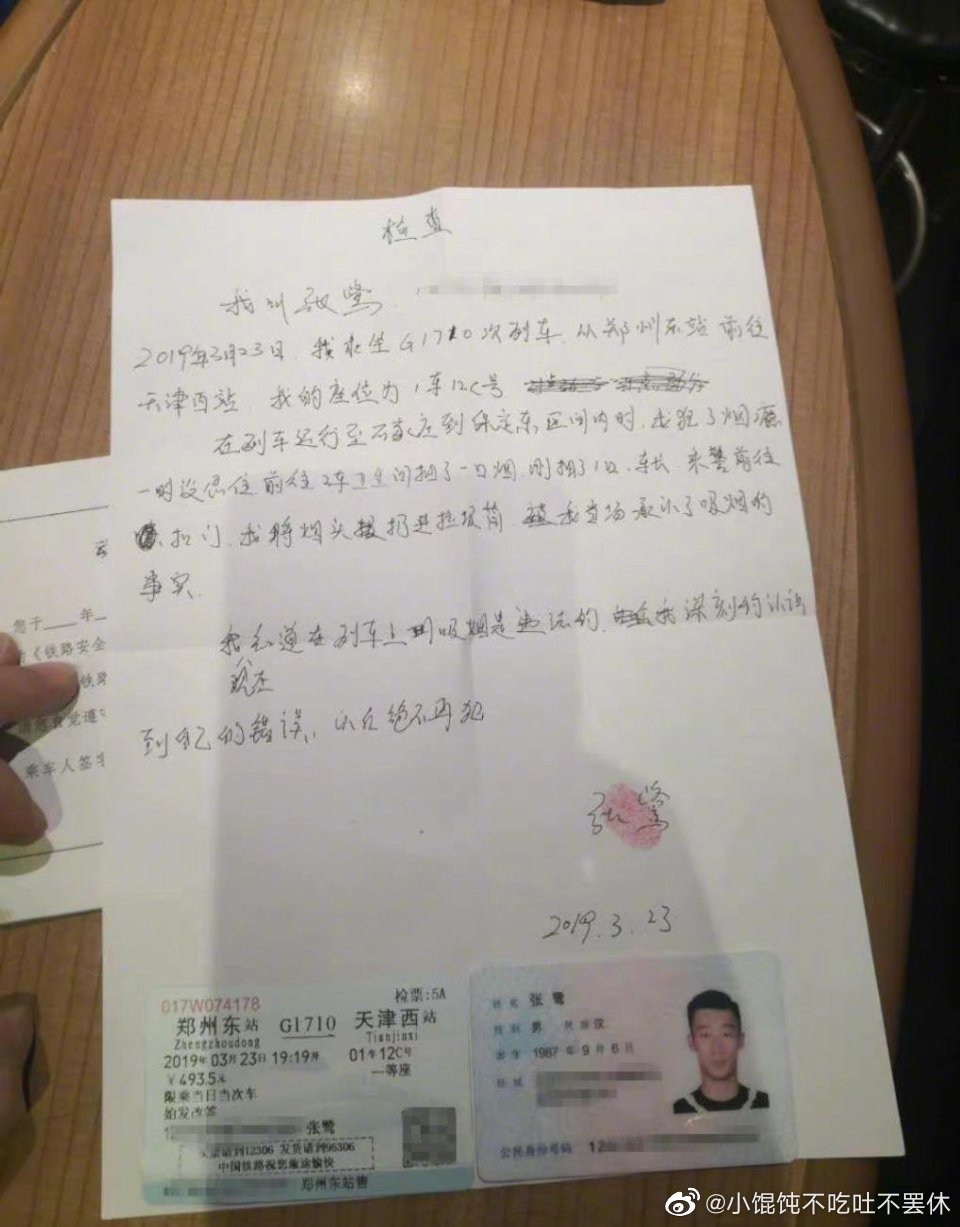 检查
我叫张鹭.
2019年3月23日，我乘坐G1710次列车，从郑州东站前往
天津西站，我的座位为1车12C号
在列车运行至石家庄到保定东区间内时，我犯了烟瘾
一时没忍住前往2车卫生间抽了一口烟，刚抽了1口，车长、乘警前往
扣门，我将烟头扔进垃圾筒，我当场承认了吸烟的
事实.
我知道在列车上吸烟是违法的，我深刻的认识
现在
到自己的错误，以后绝不再犯
张鹭
2019.3.23
您于____年
《铁路安全
铁路
自觉遵守
乘车人签字
017W074178 检票:5A
郑州东站 G1710 天津西站
Zhengzhoudong Tianjinxi
2019年03月23日19:19开 01车12C号
￥493.5元 一等座
限乘当日当次车
始发改签
张鹭
买票请到12306 发货请到95306
中国铁路祝您旅途愉快
郑州东站售
姓名 张鹭
性别 男 民族 汉
出生 1987年9月6日
住址
公民身份号码 12
@小馄饨不吃吐不罢休